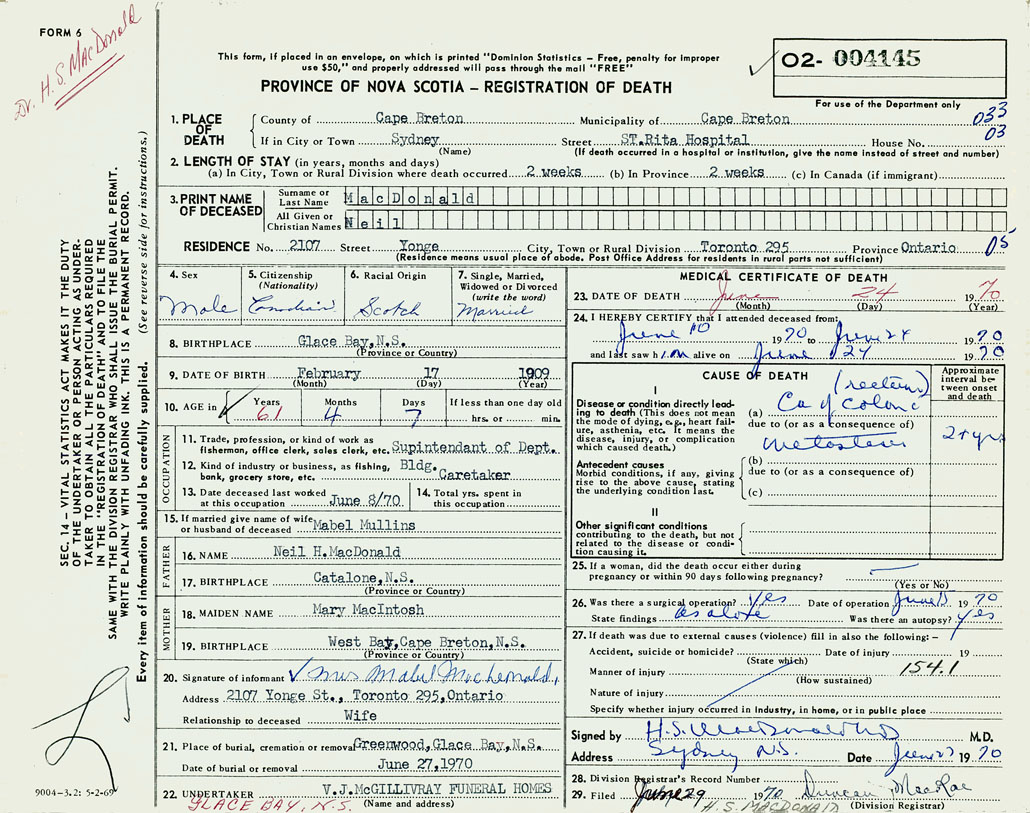 FORM 6
Dr. H. S. MacDonald
This form, if placed in an envelope, on which is printed "Dominion Statistics – Free, penalty for improper
use $50," and properly addressed will pass through the mail "FREE"
02- 004145
PROVINCE OF NOVA SCOTIA – REGISTRATION OF DEATH
For use of the Department only
033
03
1. PLACE OF DEATH
County of Cape Breton Municipality of Cape Breton
If in City or Town Sydney Street ST.Rita Hospital House No.
(Name) (If death occurred in a hospital or institution, give the name instead of street and number)
2. LENGTH OF STAY (in years, months and days)
(a) In City, Town or Rural Division where death occurred 2 weeks (b) In Province 2 weeks (c) In Canada (if immigrant)
3. PRINT NAME OF DECEASED
Surname or Last Name MacDonald
All Given or Christian Names Neil
RESIDENCE No. 2107 Street Yonge City, Town or Rural Division Toronto 295 Province Ontario 05
(Residence means usual place of abode. Post Office Address for residents in rural parts not sufficient)
4. Sex
Male
5. Citizenship
(Nationality)
Canadian
6. Racial Origin
Scotch
7. Single, Married,
Widowed or Divorced
(write the word)
Married
8. BIRTHPLACE Glace Bay,N.S.
(Province or Country)
9. DATE OF BIRTH February 17 1909
(Month) (Day) (Year)
10. AGE in
Years Months Days If less than one day old
61 4 7 hrs. or min.
OCCUPATION
11. Trade, profession, or kind of work as
fisherman, office clerk, sales clerk, etc. Supintendant of Dept.
12. Kind of industry or business, as fishing, Bldg.
bank, grocery store, etc. Caretaker
13. Date deceased last worked
at this occupation June 8/70
14. Total yrs. spent in
this occupation
15. If married give name of wife
or husband of deceased Mabel Mullins
FATHER
16. NAME Neil H.MacDonald
17. BIRTHPLACE Catalone,N.S.
(Province or Country)
MOTHER
18. MAIDEN NAME Mary MacIntosh
19. BIRTHPLACE West Bay,Cape Breton,N.S.
(Province or Country)
20. Signature of informant Mrs Mabel MacDonald
Address 2107 Yonge St., Toronto 295,Ontario
Relationship to deceased Wife
21. Place of burial, cremation or removal Greenwood,Glace Bay,N.S.
Date of burial or removal June 27,1970
22. UNDERTAKER V.J.McGILLIVRAY FUNERAL HOMES
GLACE BAY, N.S. (Name and address)
MEDICAL CERTIFICATE OF DEATH
23. DATE OF DEATH June 24 1970
(Month) (Day) (Year)
24. I HEREBY CERTIFY that I attended deceased from:
June 10 1970 to June 24 1970
and last saw him alive on June 24 1970
CAUSE OF DEATH
Approximate
interval be-
tween onset
and death
I
Disease or condition directly lead-
ing to death (This does not mean
the mode of dying, e.g., heart fail-
ure, asthenia, etc. It means the
disease, injury, or complication
which caused death.)
(rectum)
(a) Ca of colon
due to (or as a consequence of)
2+ yrs
Antecedent causes
Morbid conditions, if any, giving
rise to the above cause, stating
the underlying condition last.
(b)
due to (or as a consequence of)
(c)
II
Other significant conditions
contributing to the death, but not
related to the disease or condi-
tion causing it.
25. If a woman, did the death occur either during
pregnancy or within 90 days following pregnancy?
(Yes or No)
26. Was there a surgical operation? Yes Date of operation June 1970
State findings as above Was there an autopsy? yes
27. If death was due to external causes (violence) fill in also the following: –
Accident, suicide or homicide? Date of injury 19
(State which)
Manner of injury 154.1
(How sustained)
Nature of injury
Specify whether injury occurred in Industry, in home, or in public place
Signed by H.S. MacDonald MD M.D.
Address Sydney N.S. Date June 27 1970
28. Division Registrar's Record Number
29. Filed June 29 1970 Duncan MacRae
H.S. MACDONALD (Division Registrar)
SEC. 14 – VITAL STATISTICS ACT MAKES IT THE DUTY
OF THE UNDERTAKER OR PERSON ACTING AS UNDER-
TAKER TO OBTAIN ALL THE PARTICULARS REQUIRED
IN THE "REGISTRATION OF DEATH" AND TO FILE THE
SAME WITH THE DIVISION REGISTRAR WHO SHALL ISSUE THE BURIAL PERMIT.
WRITE PLAINLY WITH UNFADING INK. THIS IS A PERMANENT RECORD.
Every item of information should be carefully supplied. (See reverse side for instructions.)
9004-3.2: 5-2-69